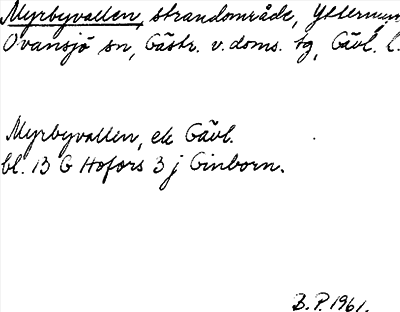 Myrbyvallen, strandområde, Yttermyra,
Ovansjö sn, Gästr. v. doms. tg, Gävl. l.
Myrbyvallen, ek Gävl.
bl. 13 G Hofors 3 j Ginborn.
B. P. 1961.